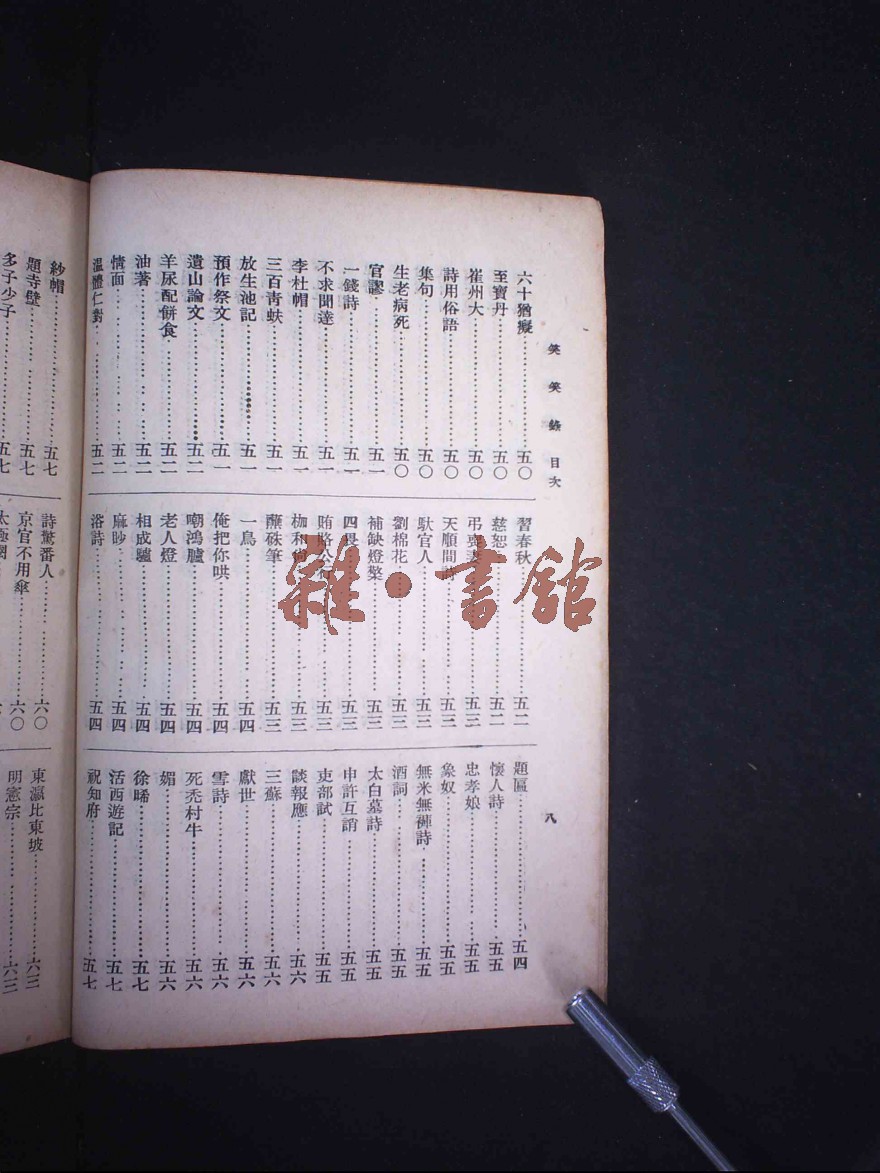 笑笑錄 目次
八
六十猶癡……五〇
至寶丹……五〇
崔州大……五〇
詩用俗語……五〇
集句……五〇
生老病死……五〇
官謬……五一
一錢詩……五一
不求聞達……五一
李杜帽……五一
三百青蚨……五一
放生池記……五一
預作祭文……五一
遺山論文……五二
羊尿配餅食……五二
油著……五二
情面……五二
溫體仁對……五二
習春秋……五二
慈恕……五二
弔喪……五三
天順間詩……五三
馱官人……五三
劉棉花……五三
補缺燈檠……五三
四畏……五三
賄賂公行……五三
枷和尚……五三
蘸硃筆……五三
一鳥……五四
俺把你哄……五四
嘲鴻臚……五四
老人燈……五四
相成驢……五四
麻眇……五四
浴詩……五四
題匾……五四
懷人詩……五五
忠孝娘……五五
象奴……五五
無米無褲詩……五五
酒詞……五五
太白墓詩……五五
申許互誚……五五
吏部試……五五
談報應……五六
三蘇……五六
獻世……五六
雪詩……五六
死禿村牛……五六
媚……五六
徐晞……五七
活西遊記……五七
祝知府……五七
紗帽……五七
題寺壁……五七
多子少子……五七
詩驚番人……六〇
京官不用傘……六〇
東瀛比東坡……六三
明憲宗……六三
雜·書館